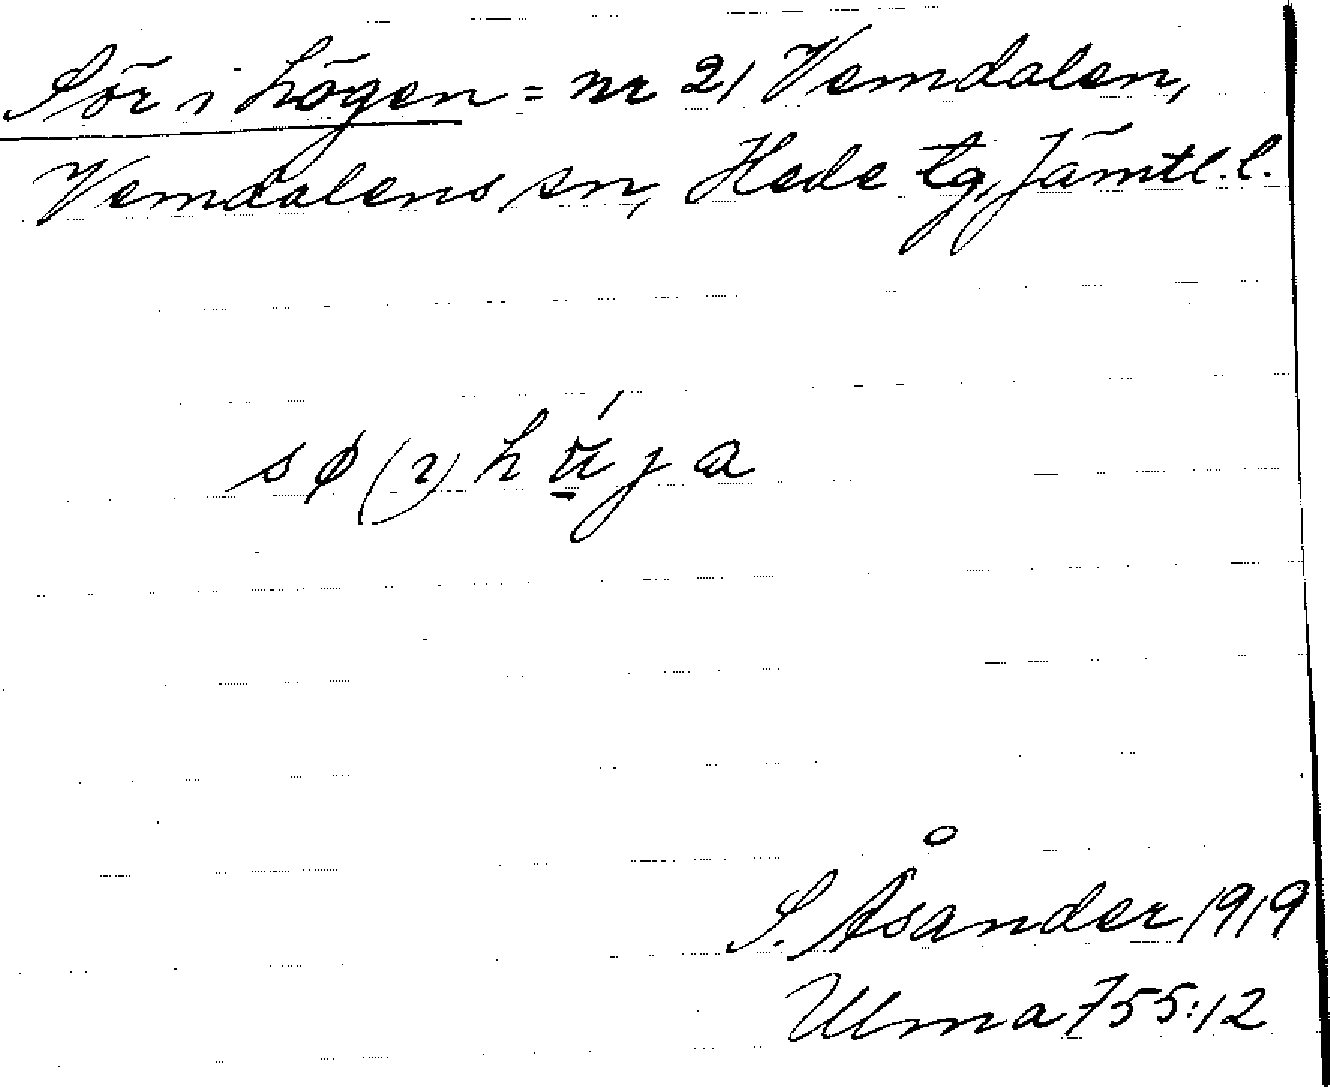 Sör i högen = nr 21 Vemdalen,
Vemdalens sn, Hede tg, Jämtl. l.
S. Åsander 1919
Ulma 755:12